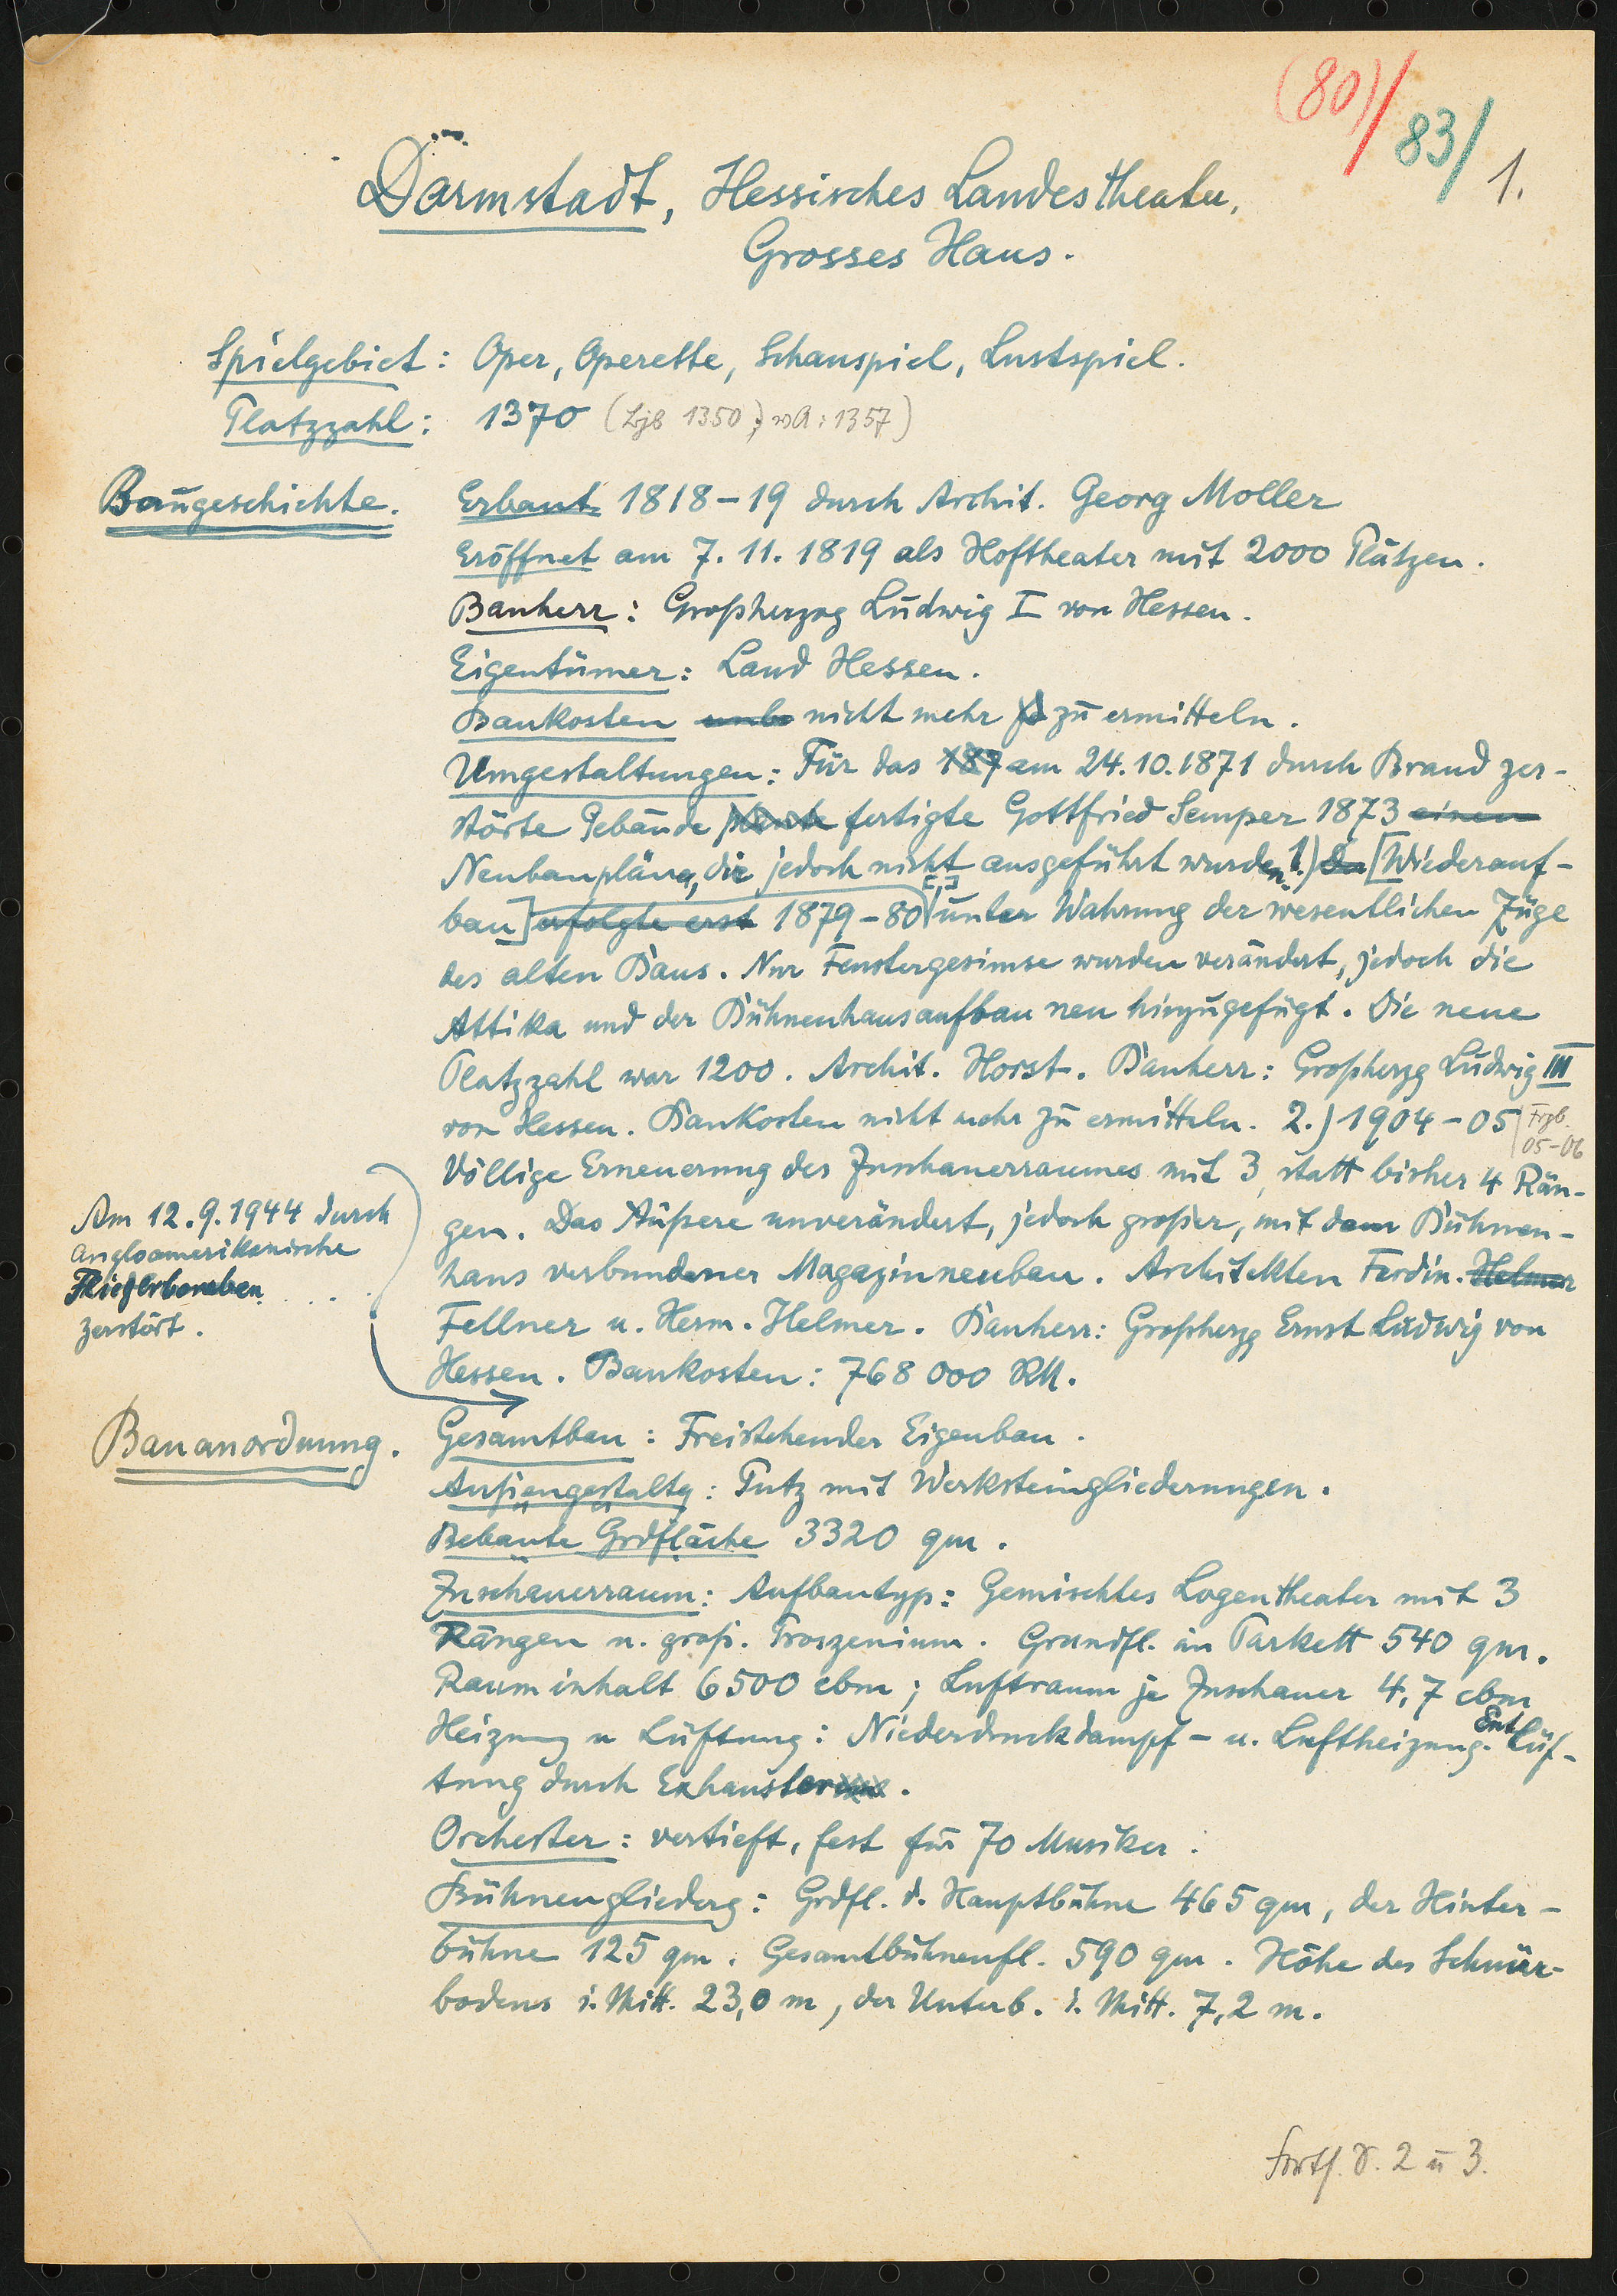 (80)/ 83/ 1.
Darmstadt, Hessisches Landestheater,
Grosses Haus.
Spielgebiet: Oper, Operette, Schauspiel, Lustspiel.
Platzzahl: 1370 (Ljb 1350; : 1357)
Baugeschichte. Erbaut 1818-19 durch Archit. Georg Moller
Eröffnet am 7. 11. 1819 als Hoftheater mit 2000 Plätzen.
Bauherr: Großherzog Ludwig I von Hessen.
Eigentümer: Land Hessen.
Baukosten unbe nicht mehr zu ermitteln.
Umgestaltungen: Für das 187 am 24.10.1871 durch Brand zer-
störte Gebäude fertigte Gottfried Semper 1873 einen
Neubaupläne, die jedoch nicht ausgeführt wurden. 1.) Der [Wiederauf-
bau] erfolgte erst 1879-80 [,,] unter Wahrung der wesentlichen Züge
des alten Baus. Nur Fenstergesimse wurden verändert, jedoch die
Attika und der Bühnenhausaufbau neu hinzugefügt. Die neue
Platzzahl war 1200. Archit. Horst. Bauherr: Großherzg Ludwig III
von Hessen. Baukosten nicht mehr zu ermitteln. 2.) 1904-05 | Frgb. 05-06
Völlige Erneuerung des Zuschauerraumes mit 3, statt bisher 4 Rän-
gen. Das Äußere unverändert, jedoch großer, mit dem Bühnen-
haus verbundener Magazinneubau. Architekten Ferdin. Helmer
Fellner u. Herm. Helmer. Bauherr: Großherzg Ernst Ludwig von
Hessen. Baukosten: 768 000 RM.
Am 12.9.1944 durch
angloamerikanische
Fliegerbomben
zerstört.
Bauanordnung. Gesamtbau: Freistehender Eigenbau.
Außengestaltg: Putz mit Werksteingliederungen.
Bebaute Grdfläche 3320 qm.
Zuschauerraum: Aufbautyp: Gemischtes Logentheater mit 3
Rängen u. groß. Proszenium. Grundfl. im Parkett 540 qm.
Rauminhalt 6500 cbm; Luftraum je Zuschauer 4,7 cbm
Heizung u Lüftung: Niederdruckdampf- u. Luftheizung. Entlüf-
tung durch Exhaustoren.
Orchester: vertieft, fest für 70 Musiker.
Bühnengliederg: Grdfl. d. Hauptbühne 465 qm, der Hinter-
bühne 125 qm. Gesamtbühnenfl. 590 qm. Höhe des Schnür-
bodens i. Mitt. 23,0 m, der Unterb. i. Mitt. 7,2 m.
Fortf. S. 2 u 3.